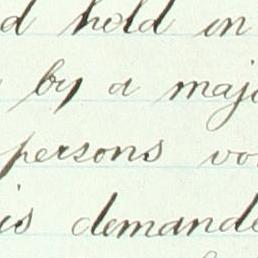 d held in
by a majo
persons vo
is demande